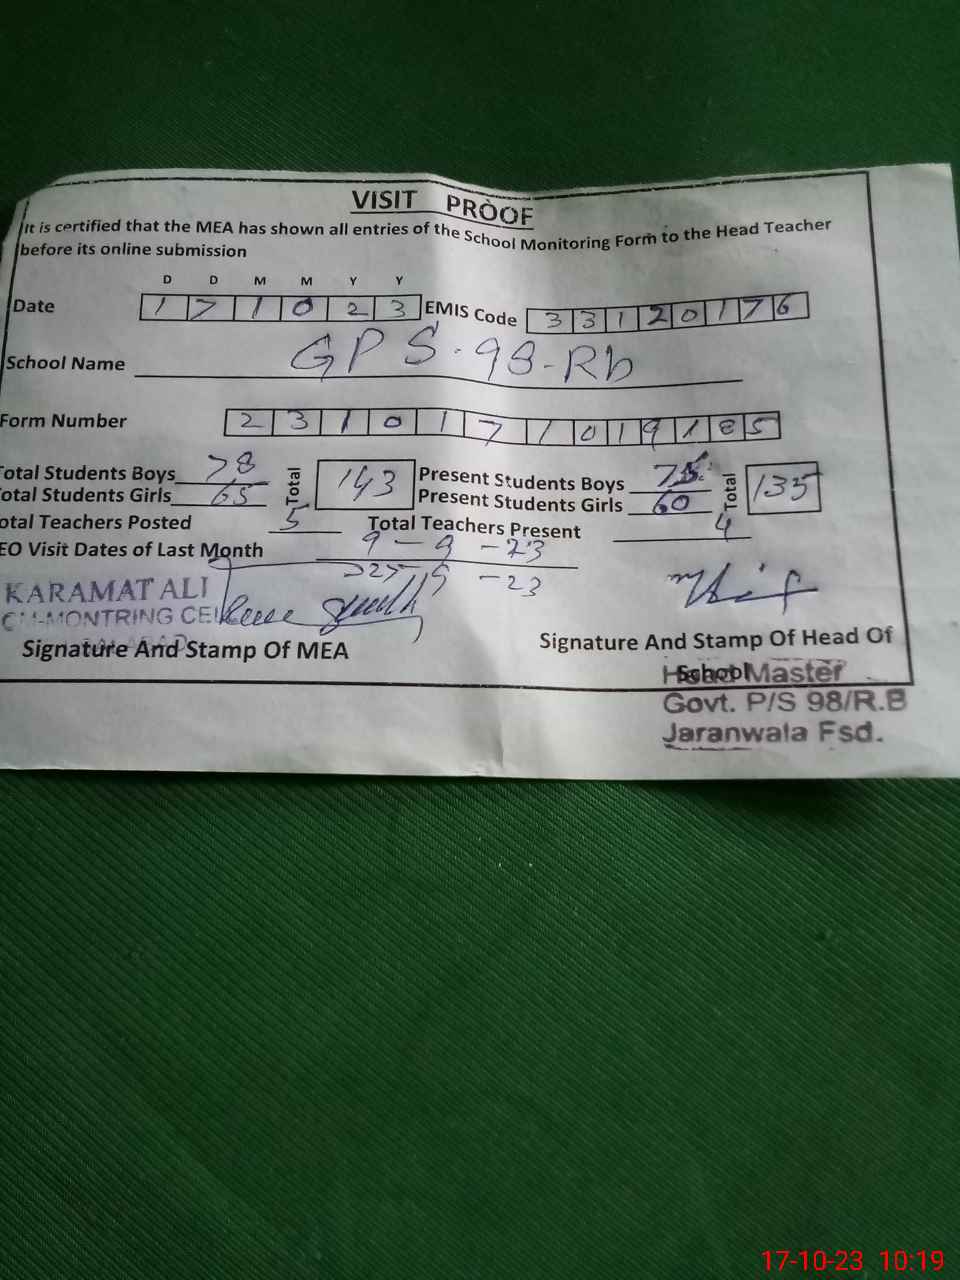 VISIT PROOF
It is certified that the MEA has shown all entries of the School Monitoring Form to the Head Teacher
before its online submission
D D M M Y Y
Date 1 7 1 0 2 3 EMIS Code 3 3 1 2 0 1 7 6
School Name GPS-98-Rb
Form Number 2 3 1 0 1 7 1 0 1 9 1 8 5
otal Students Boys 78 Total 143 Present Students Boys 75 Total 135
otal Students Girls 65 Present Students Girls 60
otal Teachers Posted 5 Total Teachers Present 4
EO Visit Dates of Last Month 9-9-23
-23
KARAMAT ALI
MONTRING CE
Signature And Stamp Of MEA
Signature And Stamp Of Head Of
School
Head Master
Govt. P/S 98/R.B
Jaranwala Fsd.
17-10-23 10:19